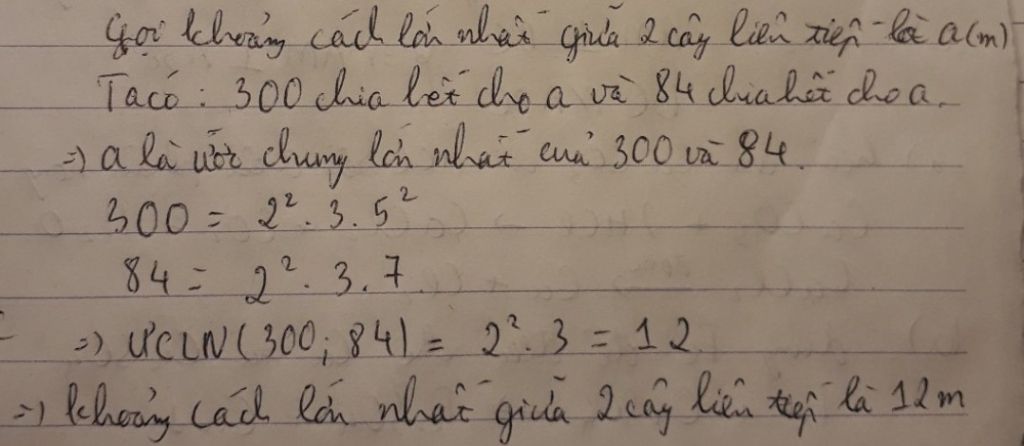 Gọi khoảng cách lớn nhất giữa 2 cây liên tiếp là a(m)
Ta có : 300 chia hết cho a và 84 chia hết cho a.
=> a là ước chung lớn nhất của 300 và 84.
300 = 2² . 3 . 5²
84 = 2² . 3 . 7
=> ƯCLN(300; 84) = 2² . 3 = 12
=> khoảng cách lớn nhất giữa 2 cây liên tiếp là 12m